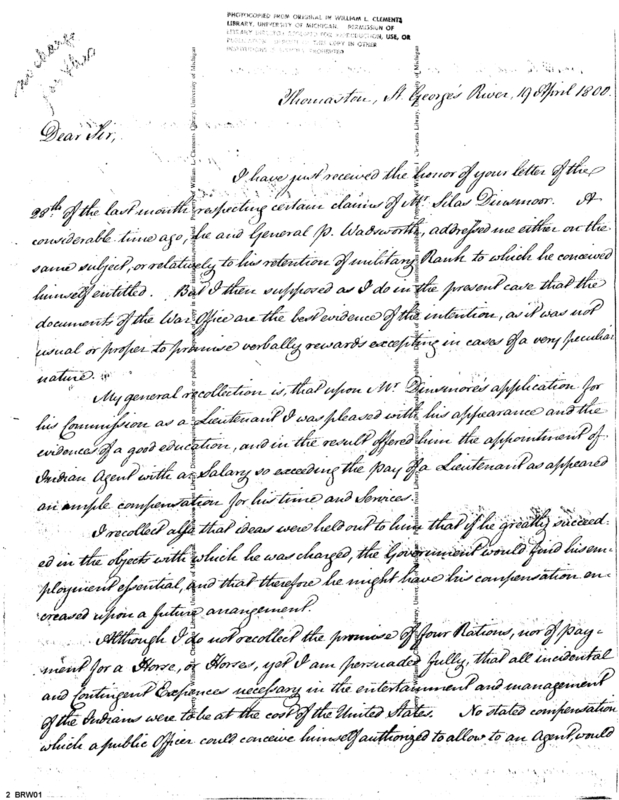 PHOTOCOPIED FROM ORIGINAL IN WILLIAM L. CLEMENTS
LIBRARY, UNIVERSITY OF MICHIGAN. PERMISSION OF
LIBRARY REPRODUCTION, USE, OR
THIS COPY IN OTHER
PROHIBITED
no charge
for this
Thomaston, St. George's River, 19 April 1800.
Dear Sir,
I have just received the honor of your letter of the
28th of the last month respecting certain claims of Mr. Silas Dinsmoor. A
considerable time ago, he and General P. Wadsworth, addressed me either on the
same subject, or relatively to his retention of military Rank to which he conceived
himself entitled. But I then supposed as I do in the present case that the
documents of the War Office are the best evidence of the intention, as it was not
usual or proper to promise verbally rewards excepting in cases of a very peculiar
nature.
My general recollection is, that upon Mr. Dinsmore's application for
his Commission as a Lieutenant I was pleased with his appearance and the
evidences of a good education, and in the result offered him the appointment of
Indian Agent with a Salary so exceeding the pay of a Lieutenant as appeared
an ample compensation for his time and Services.
I recollect also that ideas were held out to him that if he greatly succeed-
ed in the objects with which he was charged, the Government would find his em-
ployment essential, and that therefore he might have his compensation en-
creased upon a future arrangement.
Although I do not recollect the promise of four Rations, nor of pay-
ment for a Horse, or Horses, yet I am persuaded fully, that all incidental
and contingent Expences necessary in the entertainment and management
of the Indians were to be at the cost of the United States. No stated compensation
which a public Officer could conceive himself authorized to allow to an Agent, would
2 BRW01